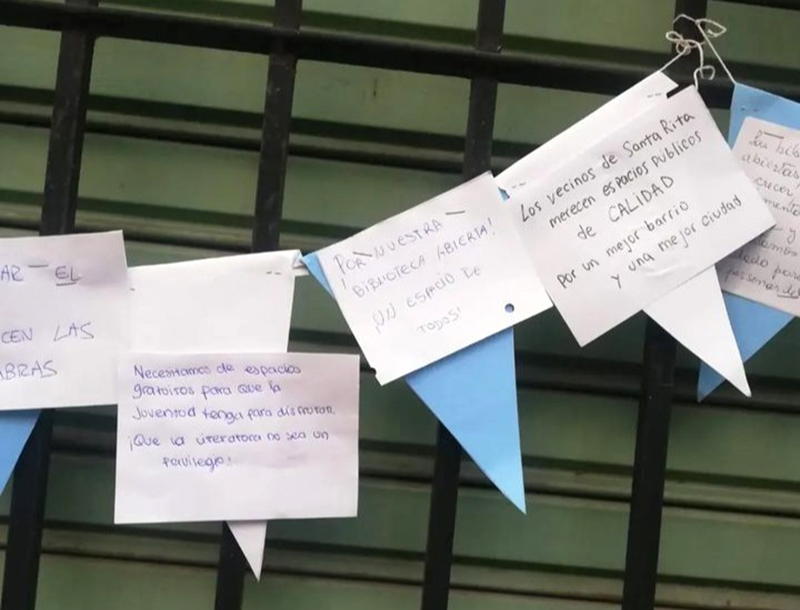 AR EL
CEN LAS
ABRAS
Necesitamos de espacios
gratoitos para que la
Joventod tenga para disfrotar.
¡Que la literatora no sea un
privilegio!
POR NUESTRA
¡BIBLIOTECA ABIERTA!
¡UN ESPACIO DE
TODOS!
Los vecinos de Santa Rita
merecen espacios públicos
de CALIDAD
por un mejor barrio
y una mejor ciudad
abiertas
crecer
y